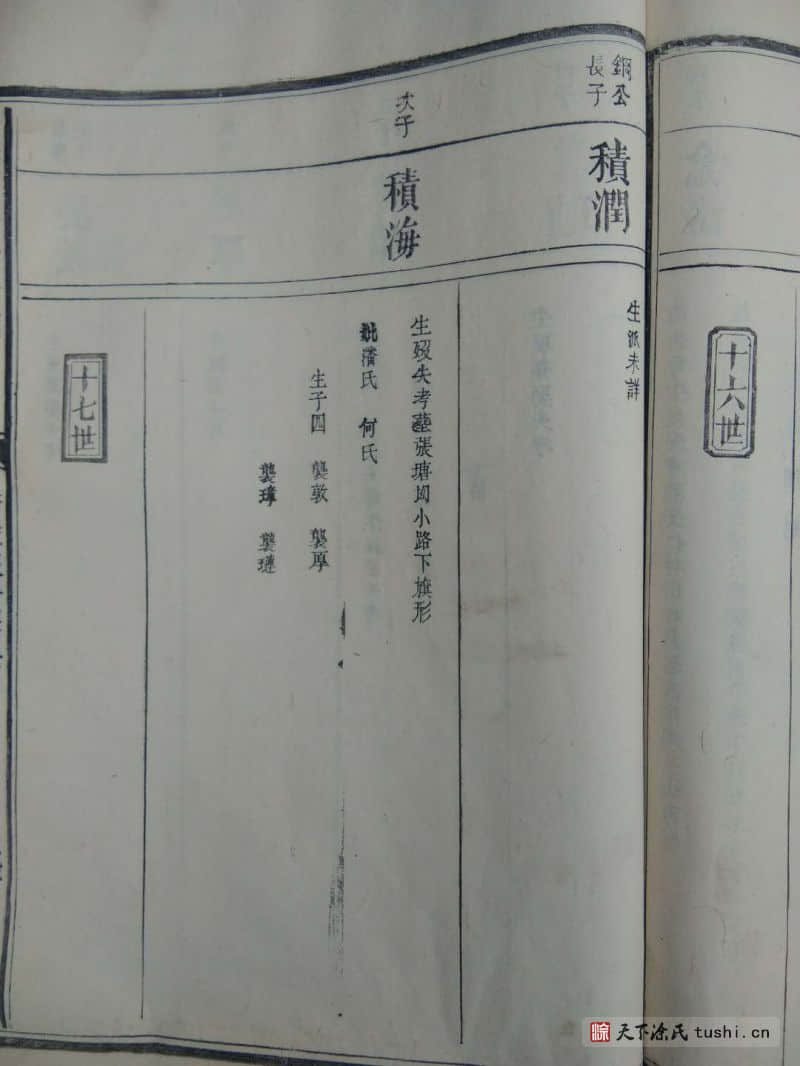 十六世
銅公
長子
積潤
生派未詳
次子
積海
生歿失考塟張塘㘭小路下旗形
妣潘氏 何氏
生子四 襲敦 襲厚
襲璋 襲璉
十七世
天下涂氏 tushi.cn